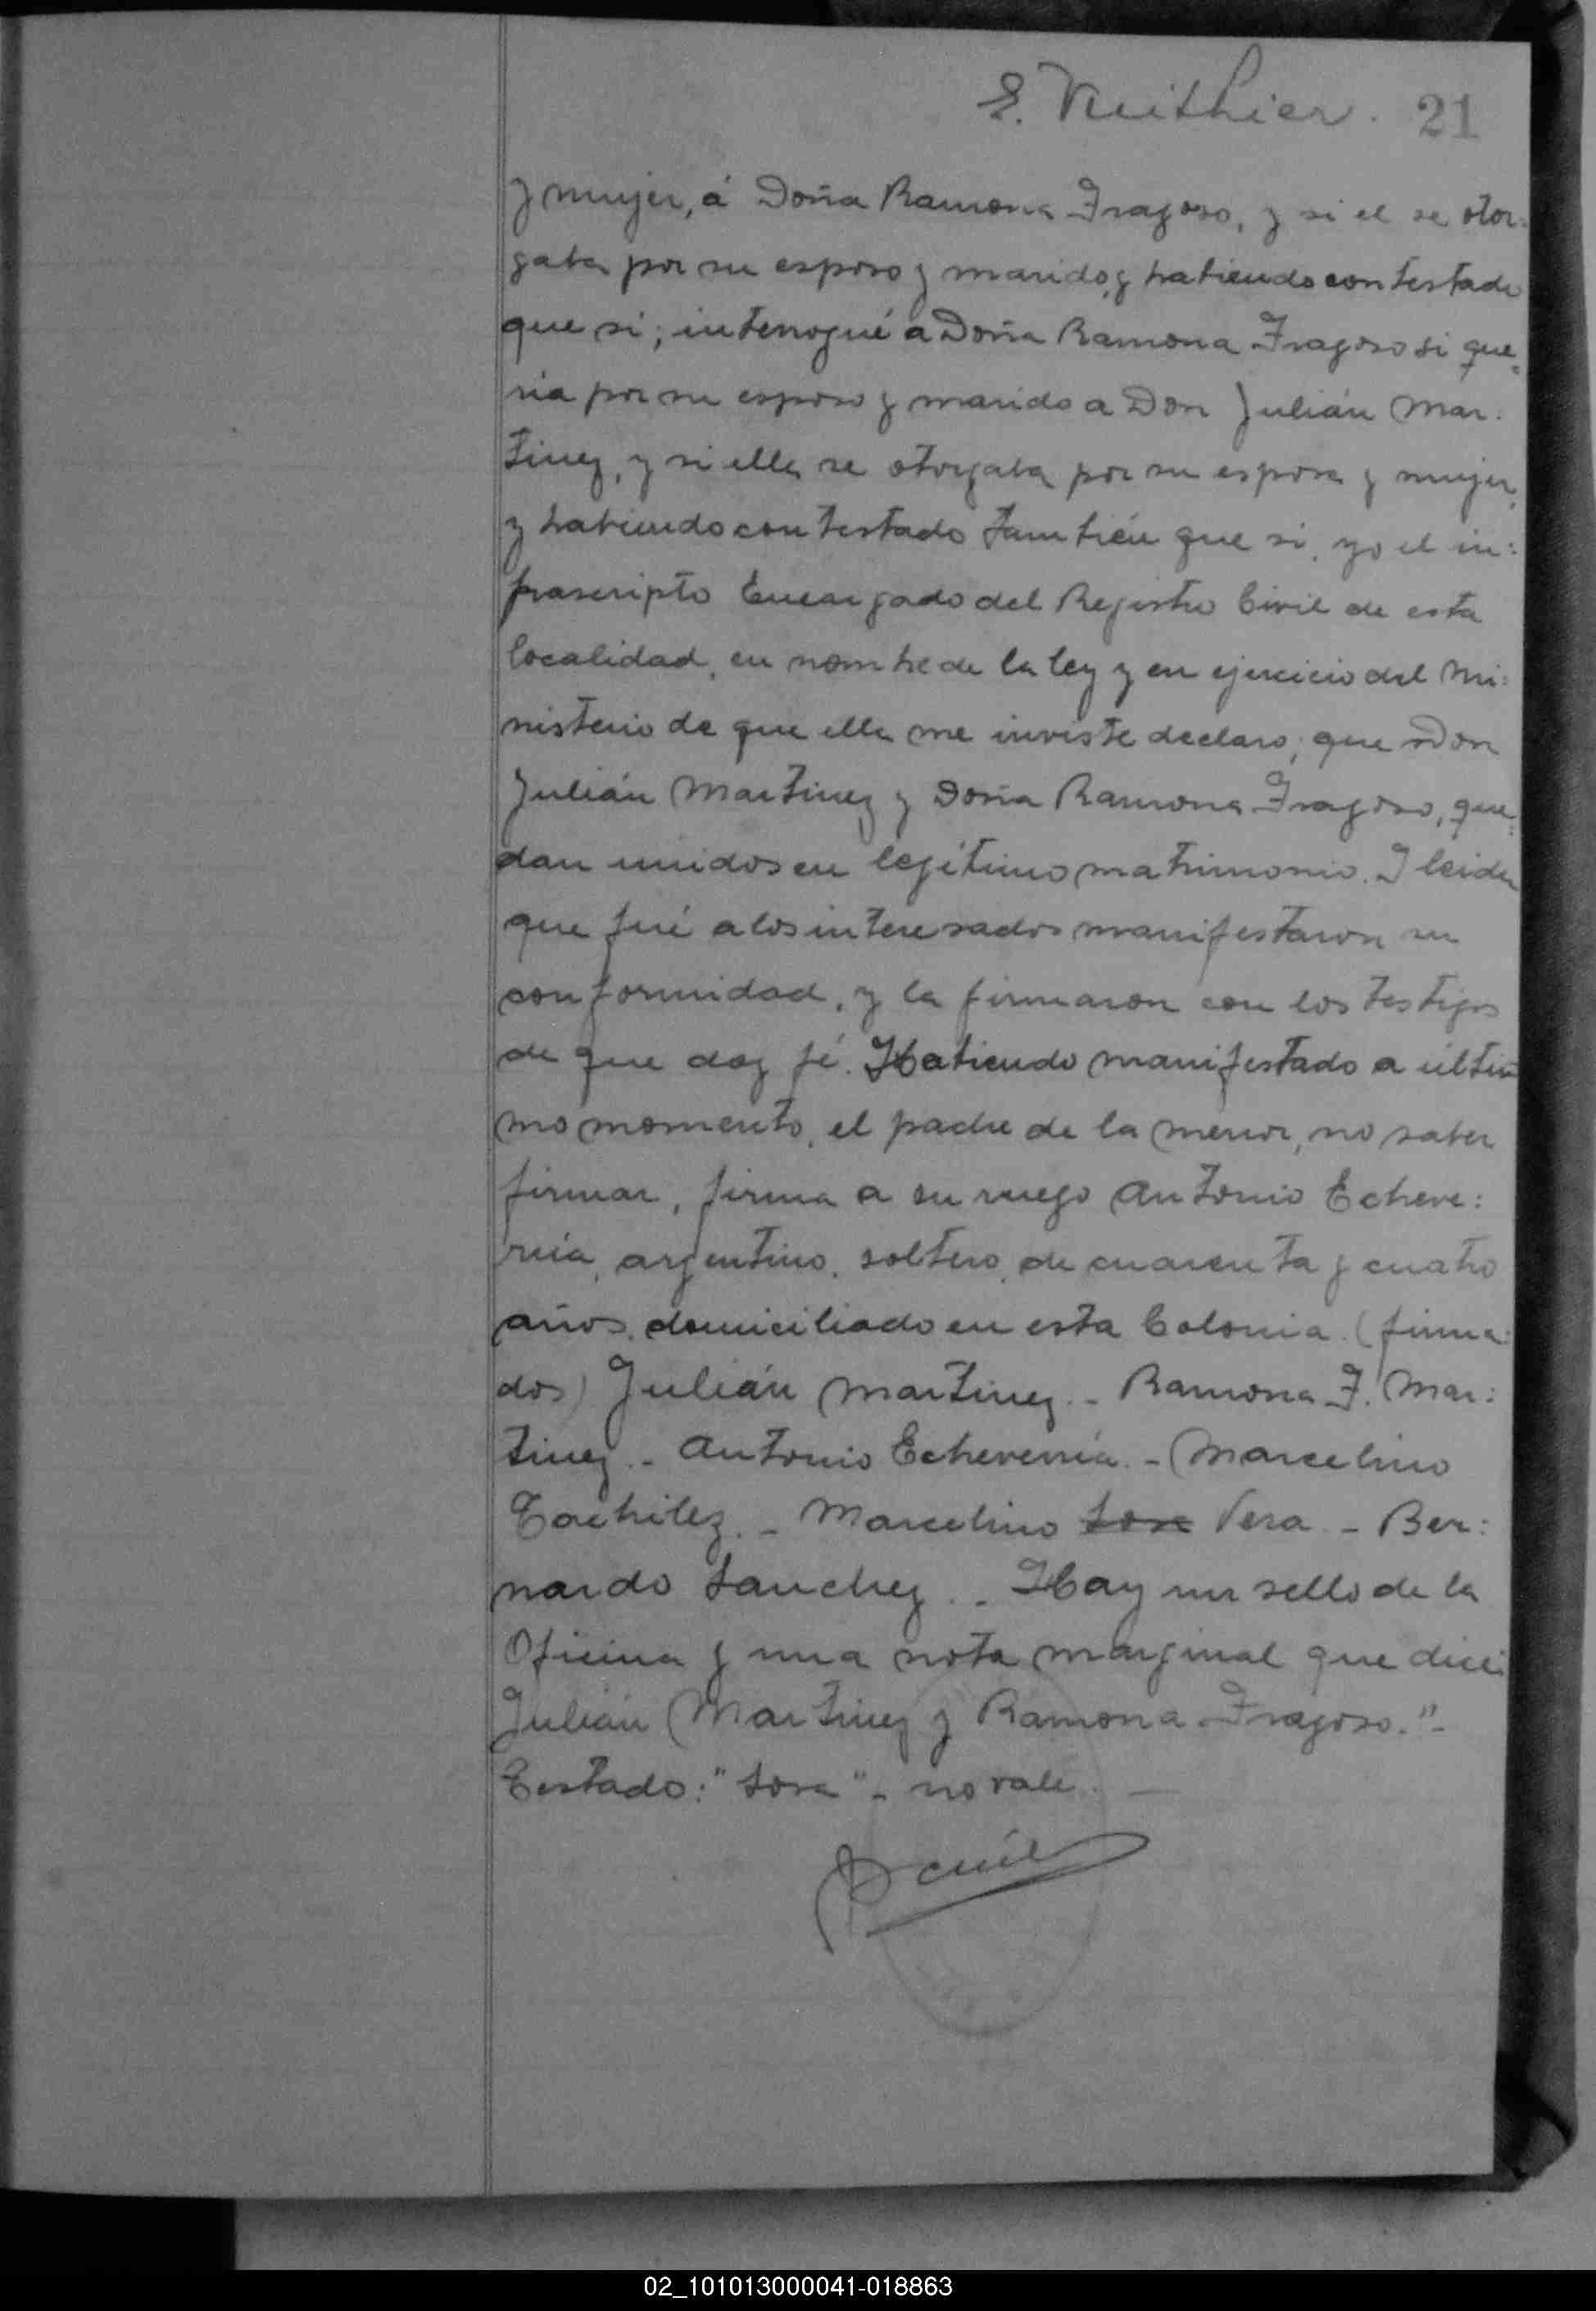 21
y mujer, á Doña Ramona Fragoso, y si el se otor=
gaba por su esposo y marido, y habiendo contestado
que si; interrogué a Doña Ramona Fragoso si que=
ria por su esposo y marido a Don Julián Mar=
tinez, y si ella se otorgaba por su esposa y mujer,
y habiendo contestado también que si, yo el in=
frascripto Encargado del Registro Civil de esta
localidad, en nombre de la ley y en ejercicio del Mi=
nisterio de que ella me inviste declaro; que Don
Julián Martinez y Doña Ramona Fragoso, que=
dan unidos en legítimo matrimonio. I leida
que fué a los interesados manifestaron su
conformidad, y la firmaron con los testigos
de que doy fé. Habiendo manifestado a últi=
mo momento, el padre de la menor, no saber
firmar, firma a su ruego Antonio Echeve=
rría, argentino, soltero, de cuarenta y cuatro
años, domiciliado en esta Colonia. (firma=
dos) Julián Martinez.- Ramona F. Mar=
tinez.- Antonio Echeverría.- Marcelino
Marcelino Sosa Vera - Ber=
nardo Sanchez.- Hay un sello de la
Oficina y una nota marginal que dice:
Julián Martinez y Ramona Fragoso."-
Testado: "Sosa" - no vale.
02_101013000041-018863